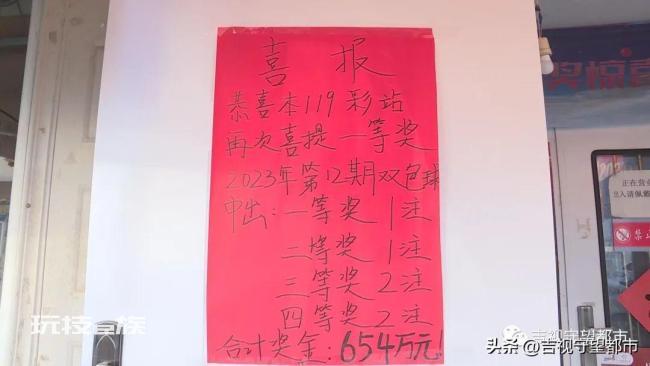 喜报
恭喜本119彩站
再次喜提一等奖
2023年第12期双色球
中出：一等奖1注
二等奖1注
三等奖2注
四等奖2注
合计奖金：654万元！
奖惊喜
正在营业
出入请佩戴
禁止
玩技掌族
吉视守望都市
头条@吉视守望都市